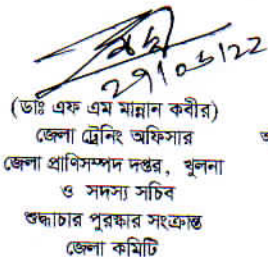 29/05/22
(ডাঃ এফ এম মান্নান কবীর)
জেলা ট্রেনিং অফিসার
জেলা প্রাণিসম্পদ দপ্তর, খুলনা
ও সদস্য সচিব
শুদ্ধাচার পুরষ্কার সংক্রান্ত
জেলা কমিটি